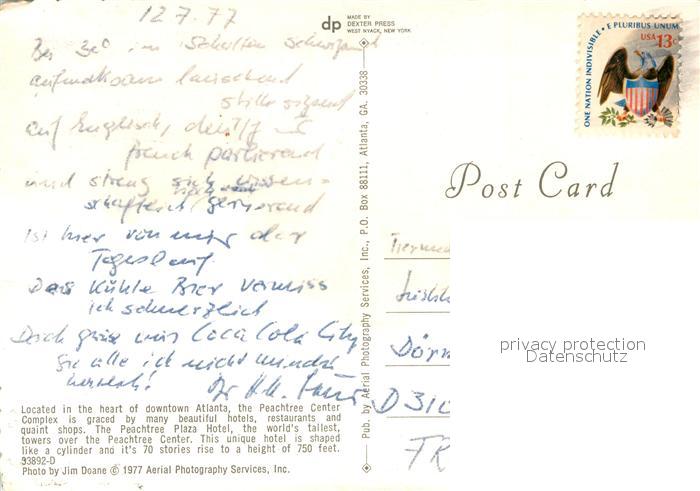 12.7.77
Bei 30° im Schatten schwitzend
aufmerksam lauschend
still sitzend
auf Englisch, deutsch
french parlierend
und streng
ist hier von mir der
Tageslauf.
Das Kühle Bier vermiss
ich schmerzlich
Doch grüße aus Coca Cola City
Sie alle ich nicht minder
herzlich! Ihr H.H.
dp MADE BY
DEXTER PRESS
WEST NYACK, NEW YORK
Pub. by Aerial Photography Services, Inc., P.O. Box 88111, Atlanta, GA. 30338
ONE NATION INDIVISIBLE • E PLURIBUS UNUM
USA 13c
Post Card
D 31
FR
privacy protection
Datenschutz
Located in the heart of downtown Atlanta, the Peachtree Center
Complex is graced by many beautiful hotels, restaurants and
quaint shops. The Peachtree Plaza Hotel, the world's tallest,
towers over the Peachtree Center. This unique hotel is shaped
like a cylinder and it's 70 stories rise to a height of 750 feet.
33892-D
Photo by Jim Doane © 1977 Aerial Photography Services, Inc.